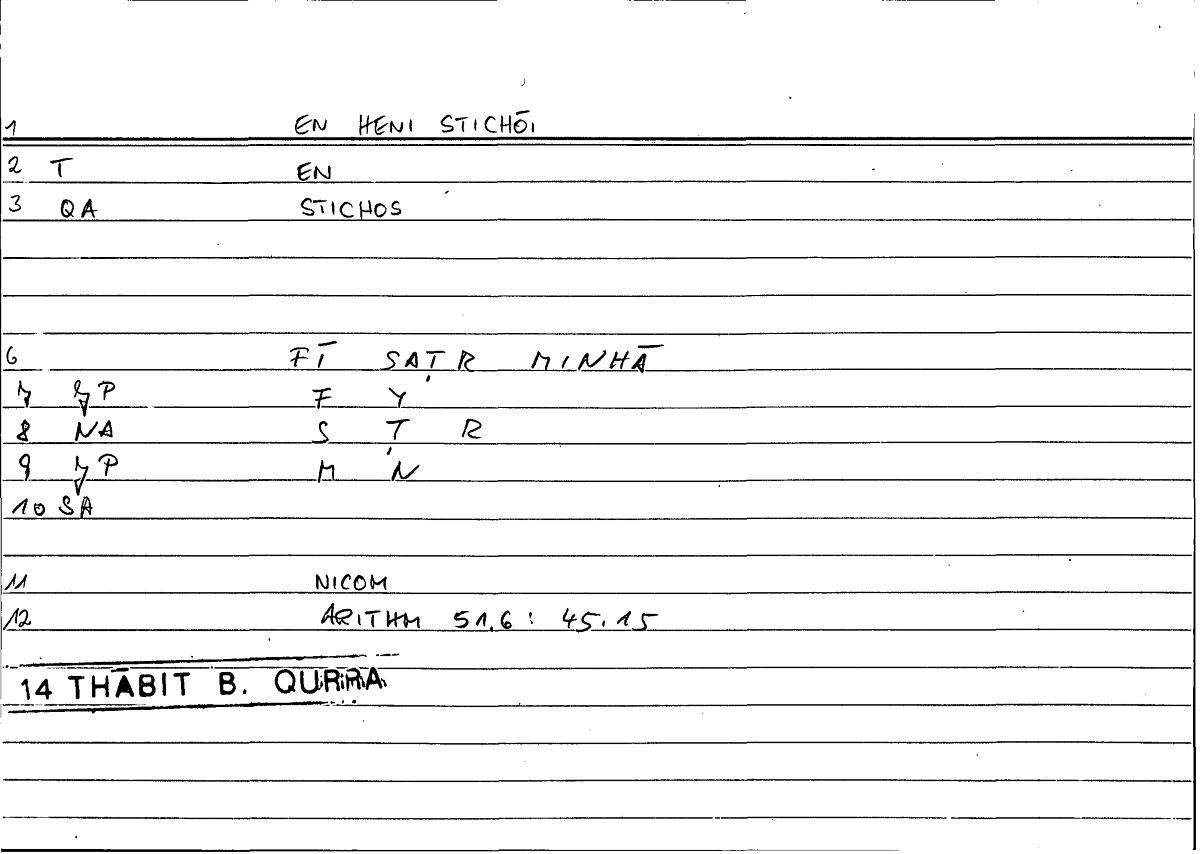 1 EN HENI STICHŌI
2 T EN
3 QA STICHOS
6 FĪ SAṬR MINHĀ
7 P F Y
8 NA S Ṭ R
9 P M N
10 SA
11 NICOM
12 ARITHM 51.6 : 45.15
14 THĀBIT B. QURRA